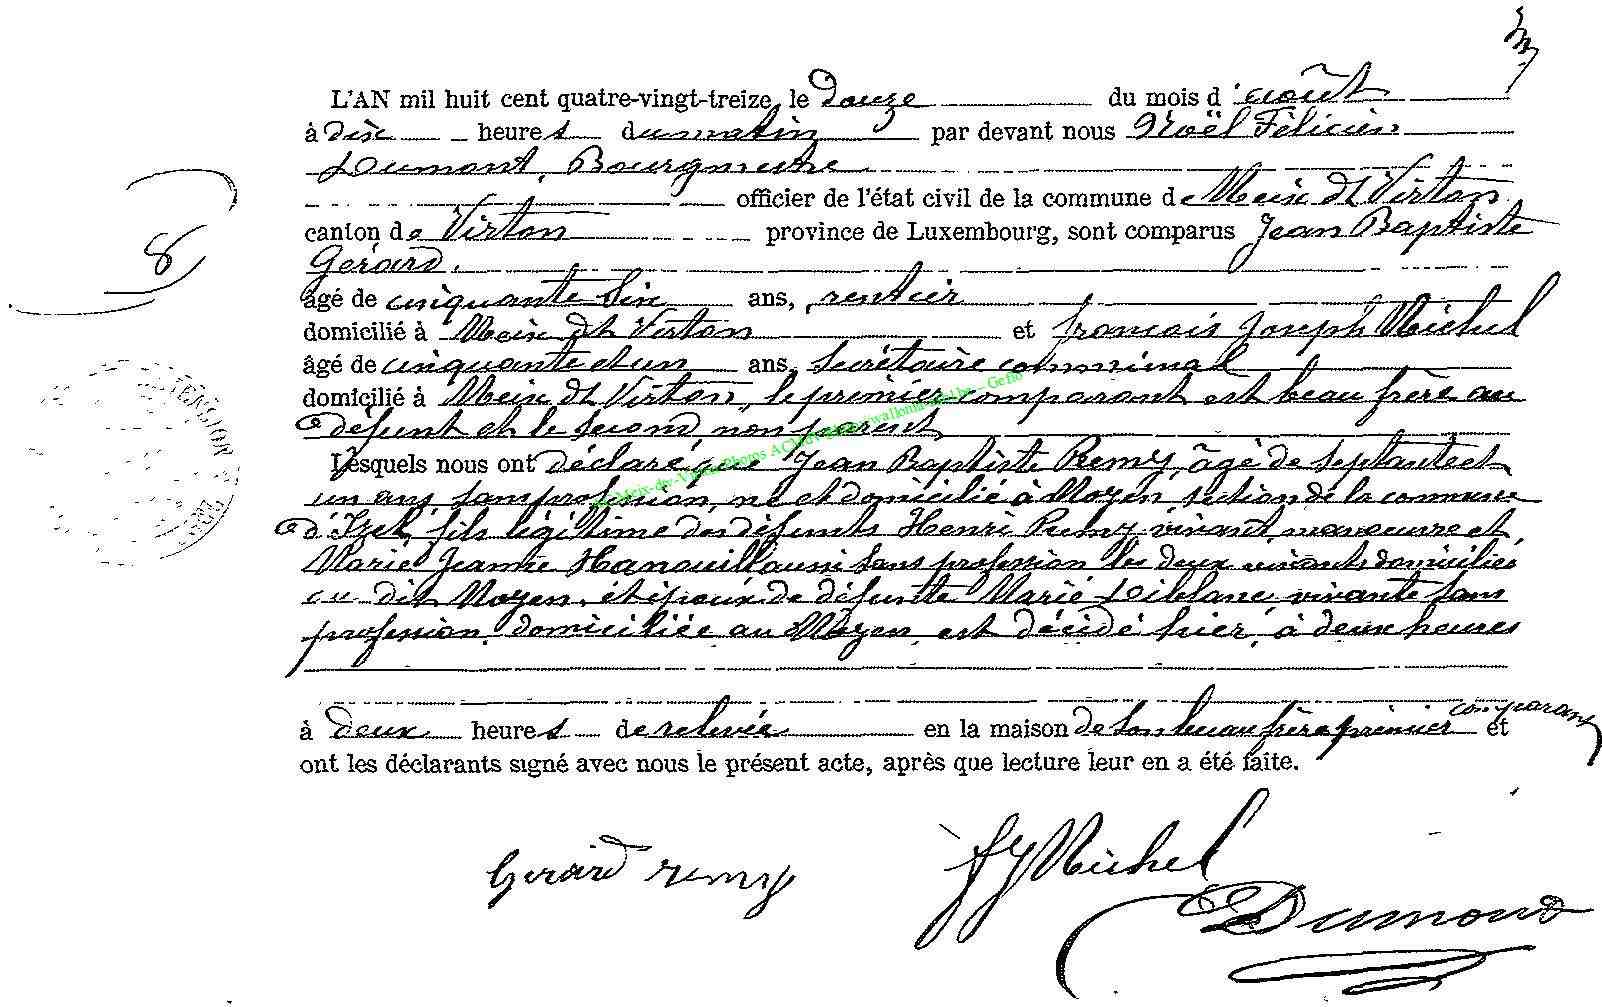 L'AN mil huit cent quatre-vingt-treize, le douze du mois d'août
à dix heures du matin par devant nous Noël Félicien
Dumont, Bourgmestre
officier de l'état civil de la commune de Meix dt Virton
canton de Virton province de Luxembourg, sont comparus Jean Baptiste
Gérard.
8
âgé de cinquante six ans, rentier
domicilié à Meix dt Virton et François Joseph Michel
âgé de cinquante et un ans, secrétaire communal
domicilié à Meix dt Virton, le premier comparant est beau frère au
défunt et le second, non parent
Lesquels nous ont déclaré que Jean Baptiste Remy, âgé de septante et
un ans, sans profession, né et domicilié à Moyen, section de la commune
d'Izel, fils légitime des défunts Henri Remy vivant manoeuvre et
Marie Jeanne sans profession les deux vivants domiciliés
au dit Moyen, et époux de défunte Marie vivante sans
profession, domiciliée au Moyen, est décédé hier, à deux heures
à deux heures de relevée en la maison de son beau frère premier comparant et
ont les déclarants signé avec nous le présent acte, après que lecture leur en a été faite.
Gérard remy
fJ Michel
Dumont